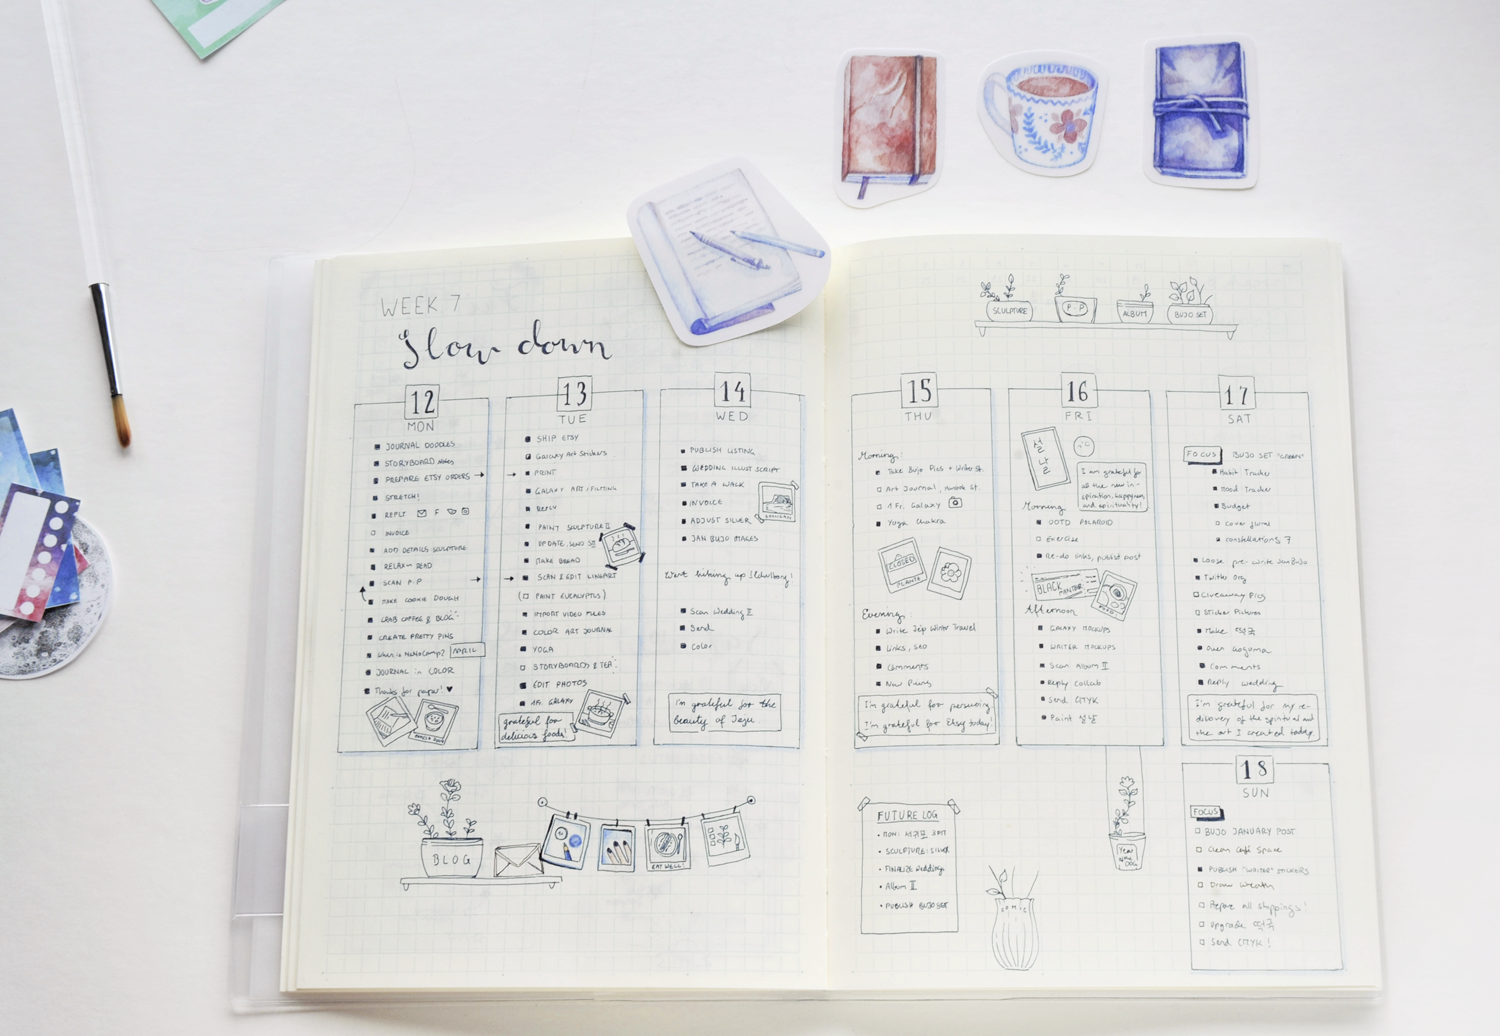 WEEK 7
Slow down
12
MON
JOURNAL DOODLES
STORYBOARD Notes
PREPARE ETSY ORDERS →
STRETCH!
REPLY
INVOICE
ADD DETAILS SCULPTURE
RELAX & READ
SCAN P.P →
MAKE COOKIE DOUGH
GRAB COFFEE & BLOG
CREATE PRETTY PINS
When is NaNoCamp? APRIL
JOURNAL in COLOR
Thanks for paper! ♥
13
TUE
SHIP ETSY
Galaxy Art Stickers
→ PRINT
GALAXY ART
REPLY
PAINT SCULPTURE II
UPDATE, SEND
MAKE BREAD
→ SCAN & EDIT LINEART
(PAINT EUCALYPTUS)
IMPORT VIDEO FILES
COLOR ART JOURNAL
YOGA
STORYBOARDS & TEA
EDIT PHOTOS
1 Fr. GALAXY
grateful for
delicious foods!
14
WED
PUBLISH LISTING
WEDDING ILLUST SCRIPT
TAKE A WALK
INVOICE
ADJUST SILVER
JAN BUJO IMAGES
Went hiking up
Scan Wedding II
Send
Color
I'm grateful for the
beauty of Jeju.
BLOG
EAT WELL!
SCULPTURE
P.P
ALBUM
BUJO SET
15
THU
Morning:
Take Bujo Pics + Writer St.
Art Journal,
1 Fr. Galaxy
Yoga Chakra
CLOSED
PLANTA
Evening:
Write Jeju Winter Travel
Links, SEO
Comments
New Pins
I'm grateful for persuing
I'm grateful for Etsy today!
16
FRI
설
날
I am grateful for
all the new in-
spiration, happyness
and spirituality!
Morning
OOTD POLAROID
Exercise
Re-do links, publish post
BLACK
PANTHER
Afternoon
GALAXY MOCKUPS
WRITER MOCKUPS
Scan Album II
Reply Collab
Send CITYK
Paint 설날
17
SAT
FOCUS BUJO SET "GREEN"
Habit Tracker
Mood Tracker
Budget
Cover
constellations 7
Loose pre-write Jan Bujo
Twitter Org
Giveaway Pics
Sticker Pictures
Make 떡국
Comments
Reply wedding
I'm grateful for my re-
discovery of the spiritual and
the art I created today.
18
SUN
FOCUS
BUJO JANUARY POST
Clean Café Space
PUBLISH "WRITER" STICKERS
Draw Wreath
Prepare all shippings!
Upgrade 떡국
Send CITYK!
FUTURE LOG
• MON:
• SCULPTURE: SILVER
• FINALIZE Wedding
• Album II
• PUBLISH BUJO SET
Year
of the
DOG